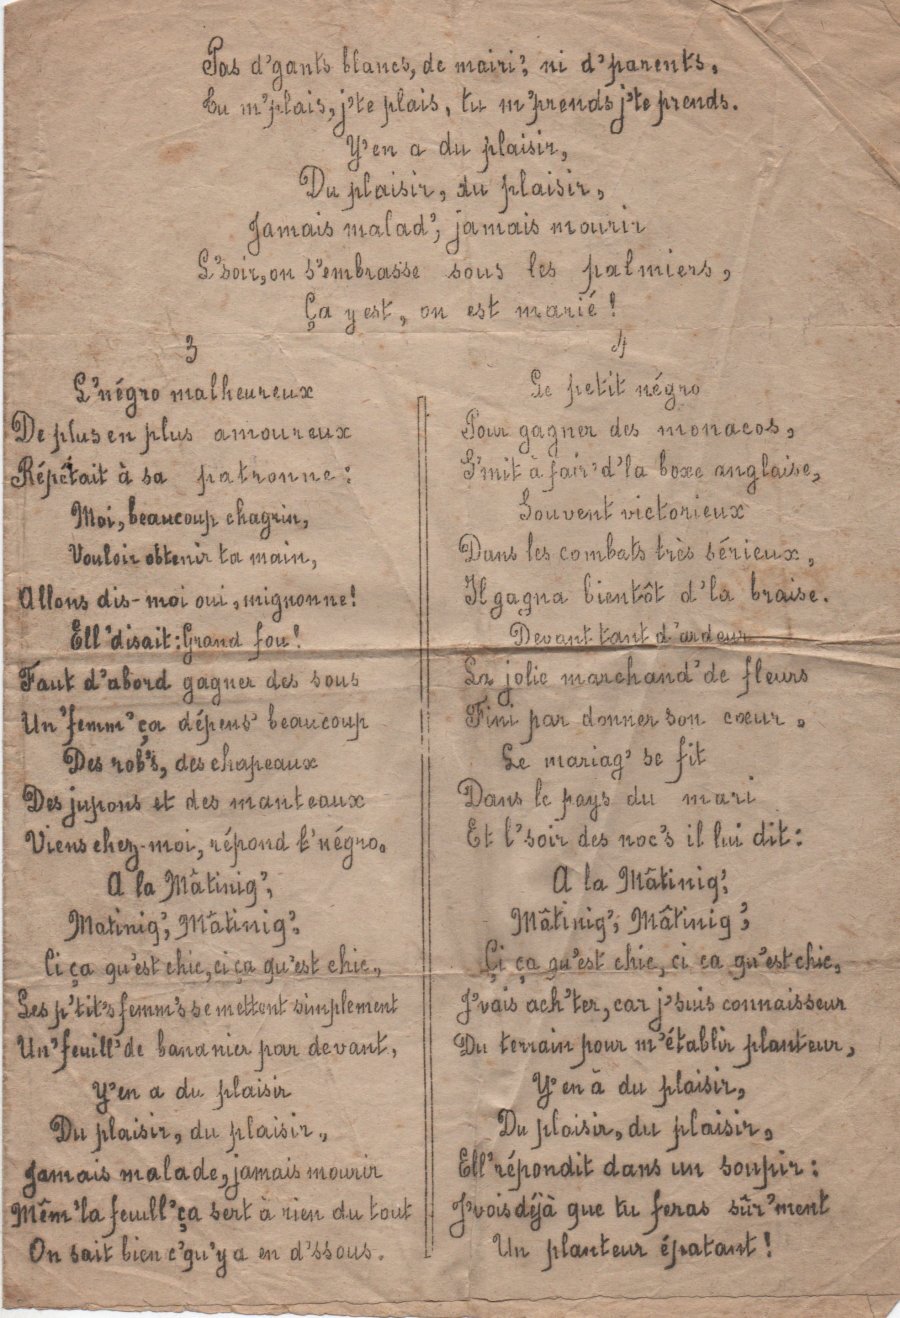 Pas d'gants blancs, de mairi', ni d'parents,
Tu m'plais, j'te plais, tu m'prends j'te prends.
Y'en a du plaisir,
Du plaisir, du plaisir,
Jamais malad', jamais mourir
L'soir, on s'embrasse sous les palmiers,
Ça y est, on est marié !
3
L'négro malheureux
De plus en plus amoureux
Répétait à sa patronne :
Moi, beaucoup chagrin,
Vouloir obtenir ta main,
Allons dis-moi oui, mignonne !
Ell' disait : Grand fou !
Faut d'abord gagner des sous
Un' femm' ça dépens' beaucoup
Des rob's, des chapeaux
Des jupons et des manteaux
Viens chez-moi, répond l'négro.
A la Mâtinig',
Matinig', Mâtinig',
Ci ça qu'est chic, ci ça qu'est chic,
Les p'tit's femm's se mettent simplement
Un' feuill' de bananier par devant,
Y'en a du plaisir
Du plaisir, du plaisir,
Jamais malade, jamais mourir
Mêm' la feuill' ça sert à rien du tout
On sait bien c'qu'y a en d'ssous.
4
Le petit négro
Pour gagner des monacos,
S'mit à fair' d'la boxe anglaise,
Souvent victorieux
Dans les combats très sérieux,
Il gagna bientôt d'la braise.
Devant tant d'ardeur
La jolie marchand' de fleurs
Fini par donner son cœur.
Le mariag' se fit
Dans le pays du mari
Et l'soir des noc's il lui dit :
A la Mâtinig',
Mâtinig', Mâtinig',
Çi ça qu'est chic, ci ca qu'est chic,
J'vais ach'ter, car j'suis connaisseur
Du terrain pour m'établir planteur,
Y'en à du plaisir,
Du plaisir, du plaisir,
Ell' répondit dans un soupir :
J'vois déjà que tu feras sûr'ment
Un planteur épatant !